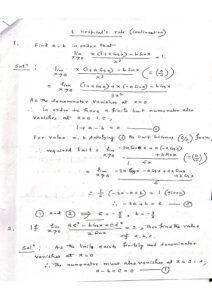 L Hospital's rule (continuation)
1.
Find a, b in order that
lim x→0 x(1+a cos x) − b sin x / x³ = 1.
Solⁿ: lim x→0 x(1+a cos x) − b sin x / x³ (= (0/0))
= lim x→0 (1+a cos x) + x(−a sin x) − b cos x / 3x²
As the denominator vanishes at x=0
∴ in order to have a finite limit numerator also
vanishes at x=0 i.e.,
1 + a − b = 0 — ①
For value a, b satisfying ① the limit becomes (0/0) form
∴ required limit =
= 1 (given)
⇒ −3a + b = 6 — ②
① & ② ⇒ a = −5/2, b = −3/2
2. If lim x→0 = 2, then find the value
of a, b, c.
Solⁿ: As the limit exists finitely and denominator
vanishes at x=0
∴ the numerator must also vanishes at x=0 i.e.,
a − b + c = 0 — ①